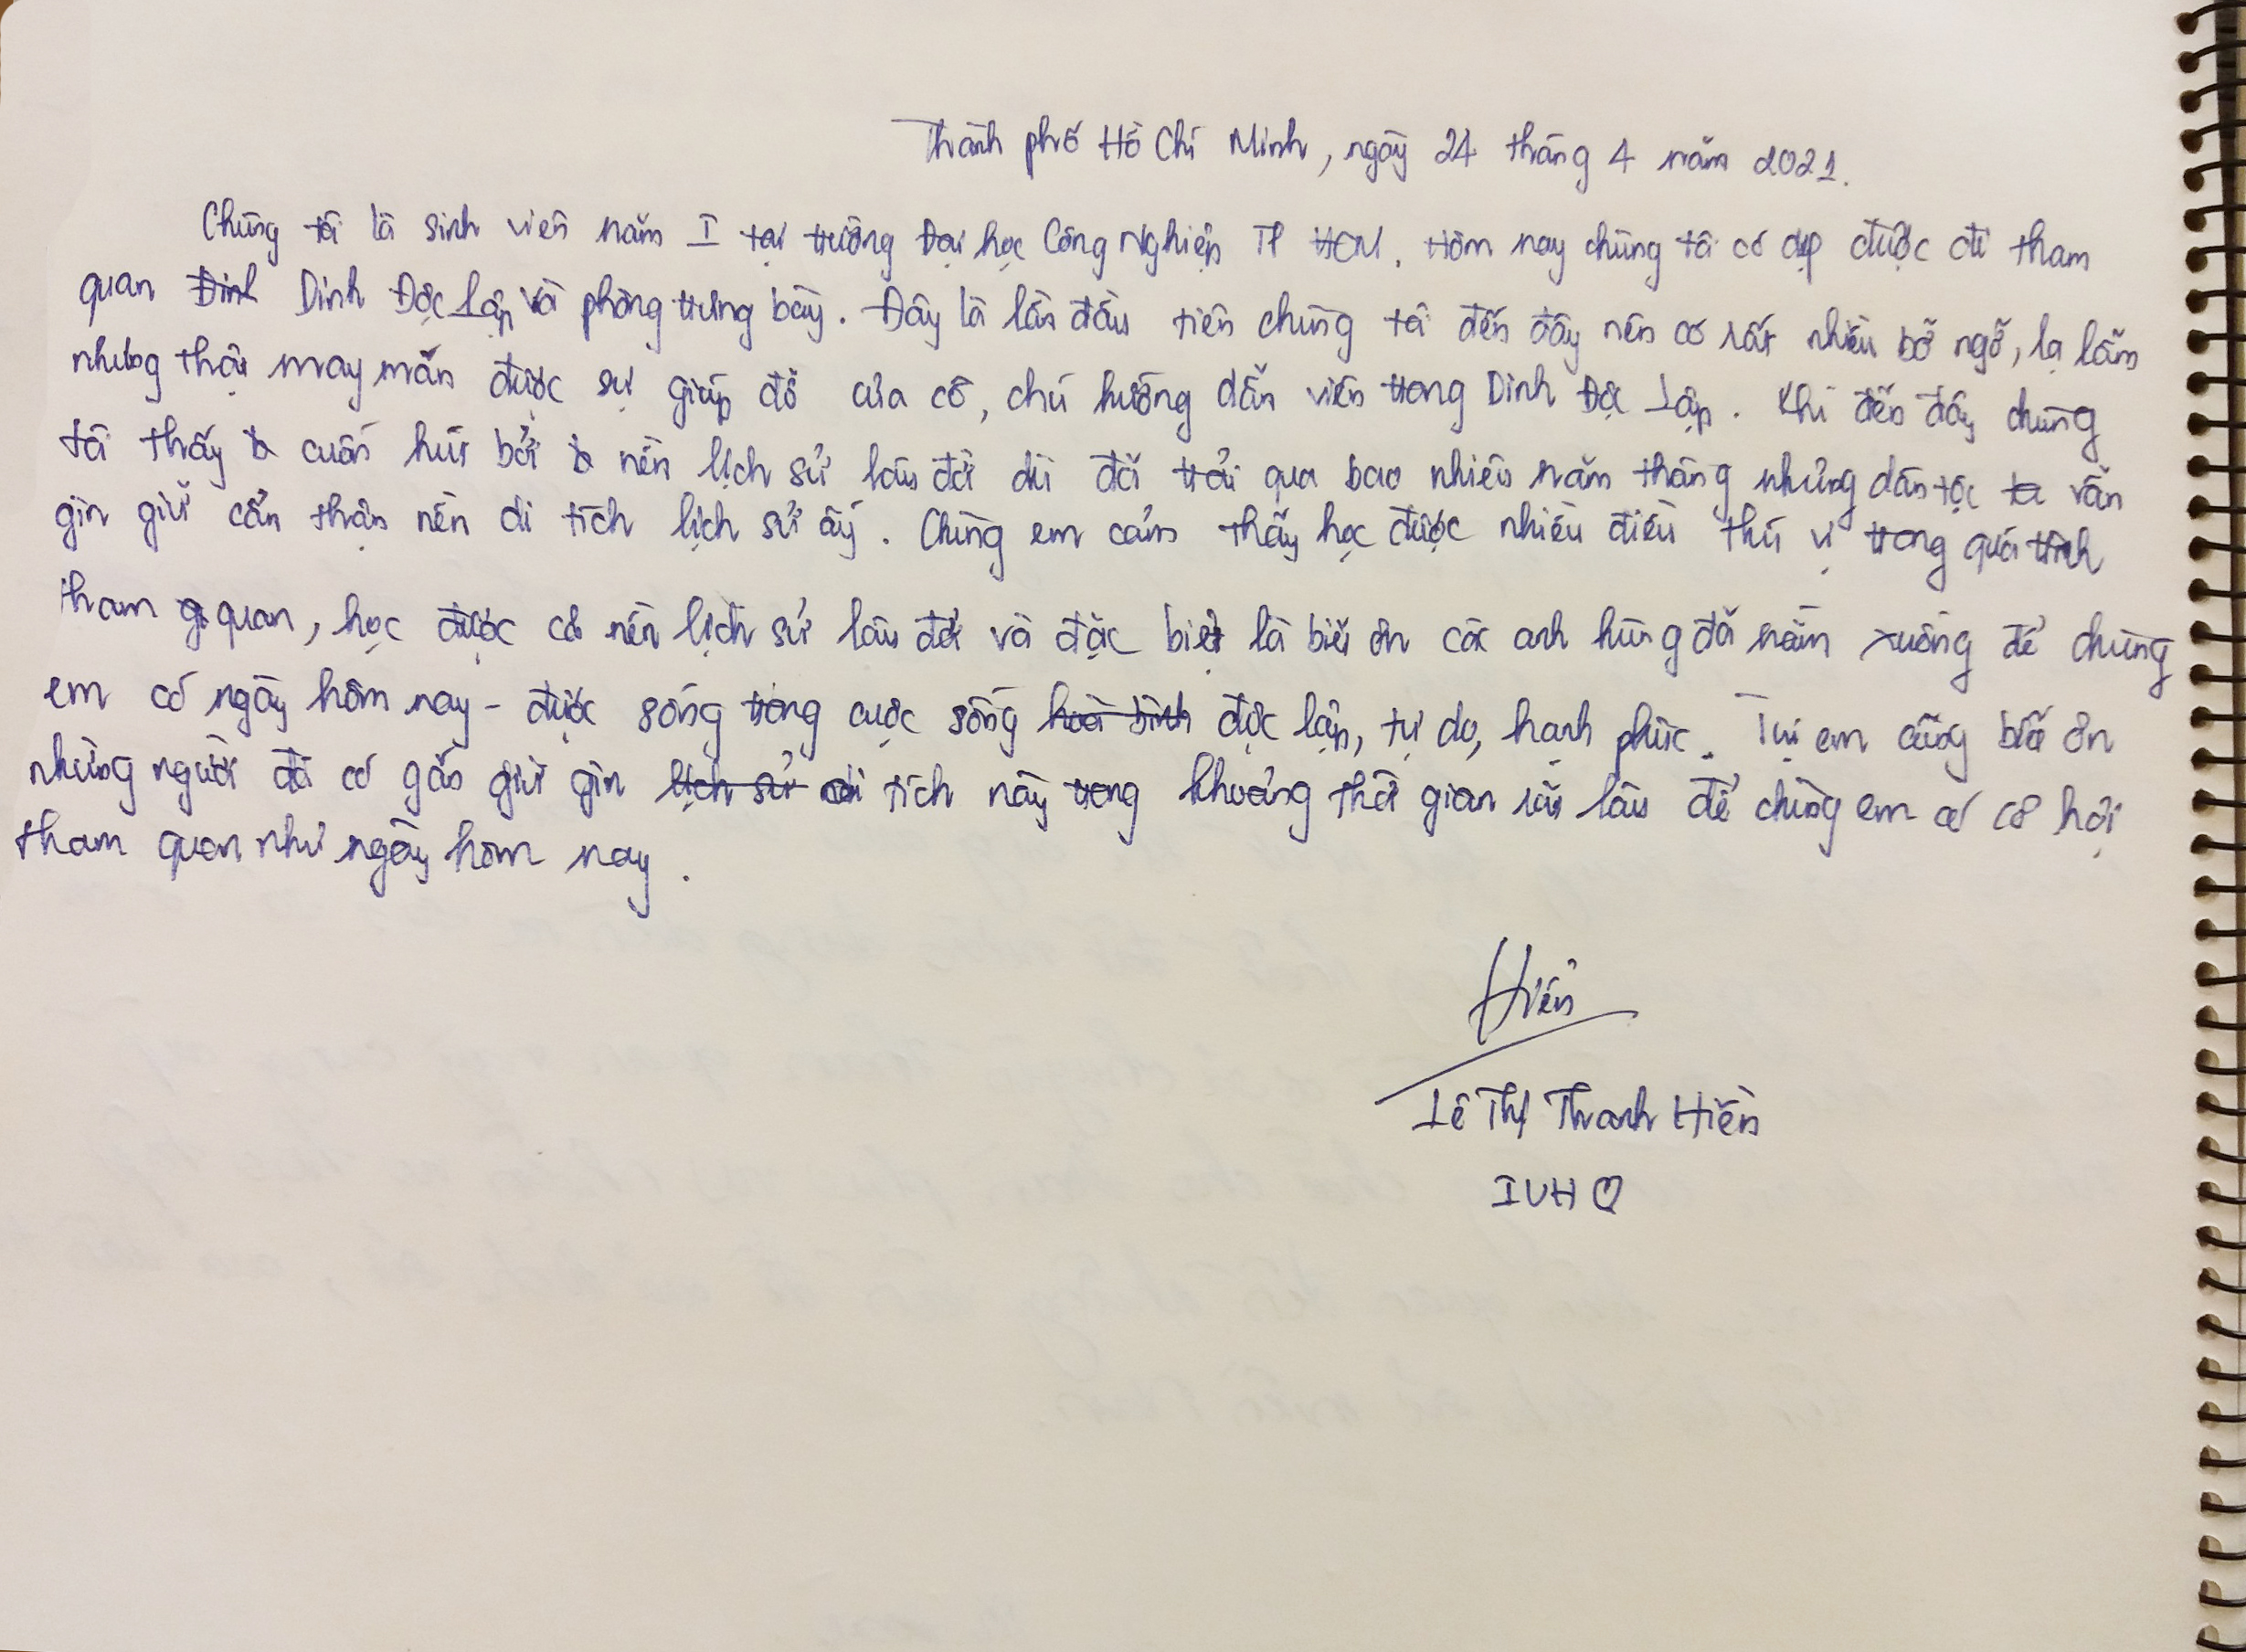 Thành phố Hồ Chí Minh, ngày 24 tháng 4 năm 2021.
Chúng tôi là sinh viên năm I tại trường Đại học Công Nghiệp TP HCM. Hôm nay chúng tôi có dịp được đi tham
quan Dinh Độc Lập và phòng trưng bày. Đây là lần đầu tiên chúng tôi đến đây nên có rất nhiều bỡ ngỡ, lạ lẫm
nhưng thật may mắn được sự giúp đỡ của cô, chú hướng dẫn viên trong Dinh Độc Lập. Khi đến đây chúng
tôi thấy cuốn hút bởi nền lịch sử lâu đời dù đã trải qua bao nhiêu năm tháng nhưng dân tộc ta vẫn
gìn giữ cẩn thận nền di tích lịch sử ấy. Chúng em cảm thấy học được nhiều điều thú vị trong quá trình
tham quan, học được cả nền lịch sử lâu đời và đặc biệt là biết ơn các anh hùng đã nằm xuống để chúng
em có ngày hôm nay - được sống trong cuộc sống độc lập, tự do, hạnh phúc. Tụi em cũng biết ơn
những người đã cố gắn giữ gìn di tích này trong khoảng thời gian rất lâu để chúng em có cơ hội
tham quan như ngày hôm nay.
Hiền
Lê Thị Thanh Hiền
IUH ♡